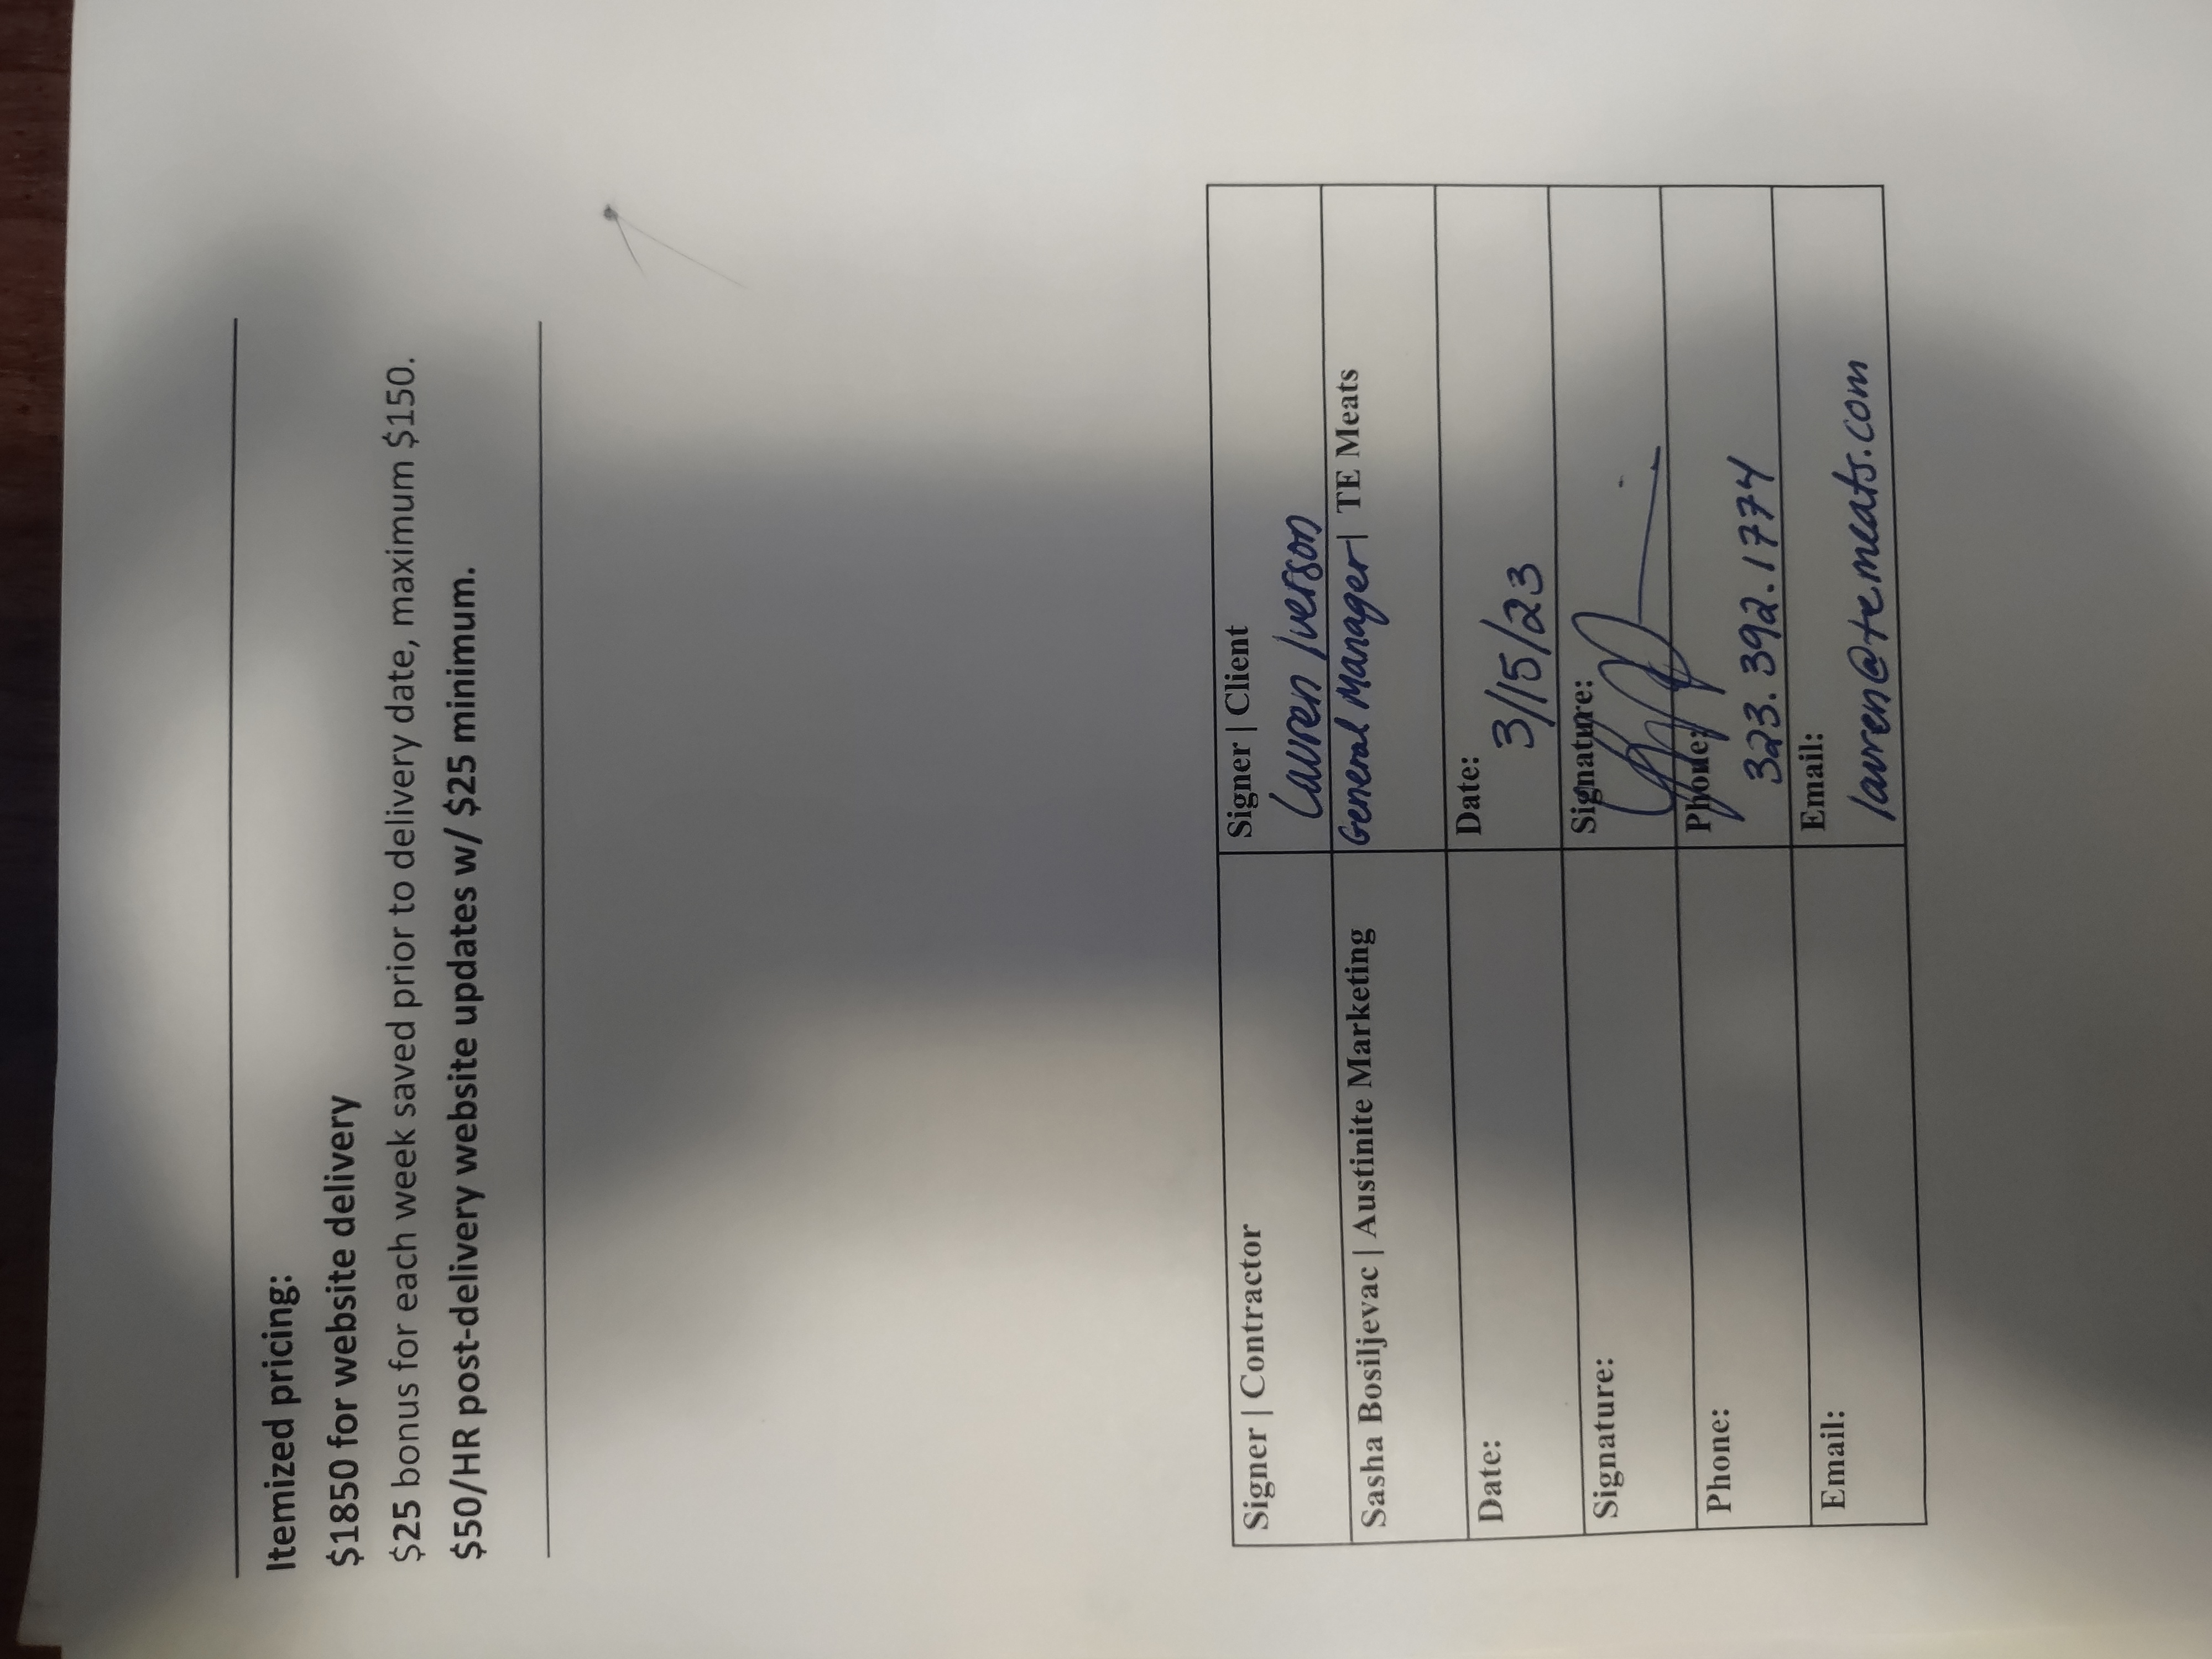 Itemized pricing:
$1850 for website delivery
$25 bonus for each week saved prior to delivery date, maximum $150.
$50/HR post-delivery website updates w/ $25 minimum.
Signer | Contractor
Signer | Client
Lauren Iverson
Sasha Bosiljevac | Austinite Marketing
General Manager | TE Meats
Date:
Date:
3/15/23
Signature:
Signature:
Phone:
Phone:
323.392.1774
Email:
Email:
lauren@temeats.com